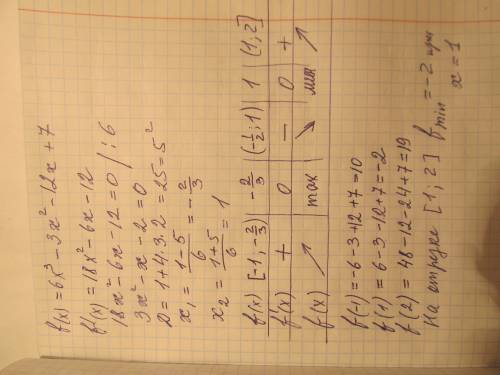 f(x)=6x³-3x²-12x+7
f'(x)=18x²-6x-12
18x²-6x-12=0 /:6
3x²-x-2=0
D=1+4·3·2=25=5²
x₁=(1-5)/6=-2/3
x₂=(1+5)/6=1
f(x) | [-1,-2/3) | -2/3 | (-1/2;1) | 1 | (1;2]
f'(x) | + | 0 | - | 0 | +
f(x) | ↗ | max | ↘ | мин | ↗
f(-1)=-6-3+12+7=10
f(1)=6-3-12+7=-2
f(2)=48-12-24+7=19
На отрезке [1;2] f min=-2 при
x=1